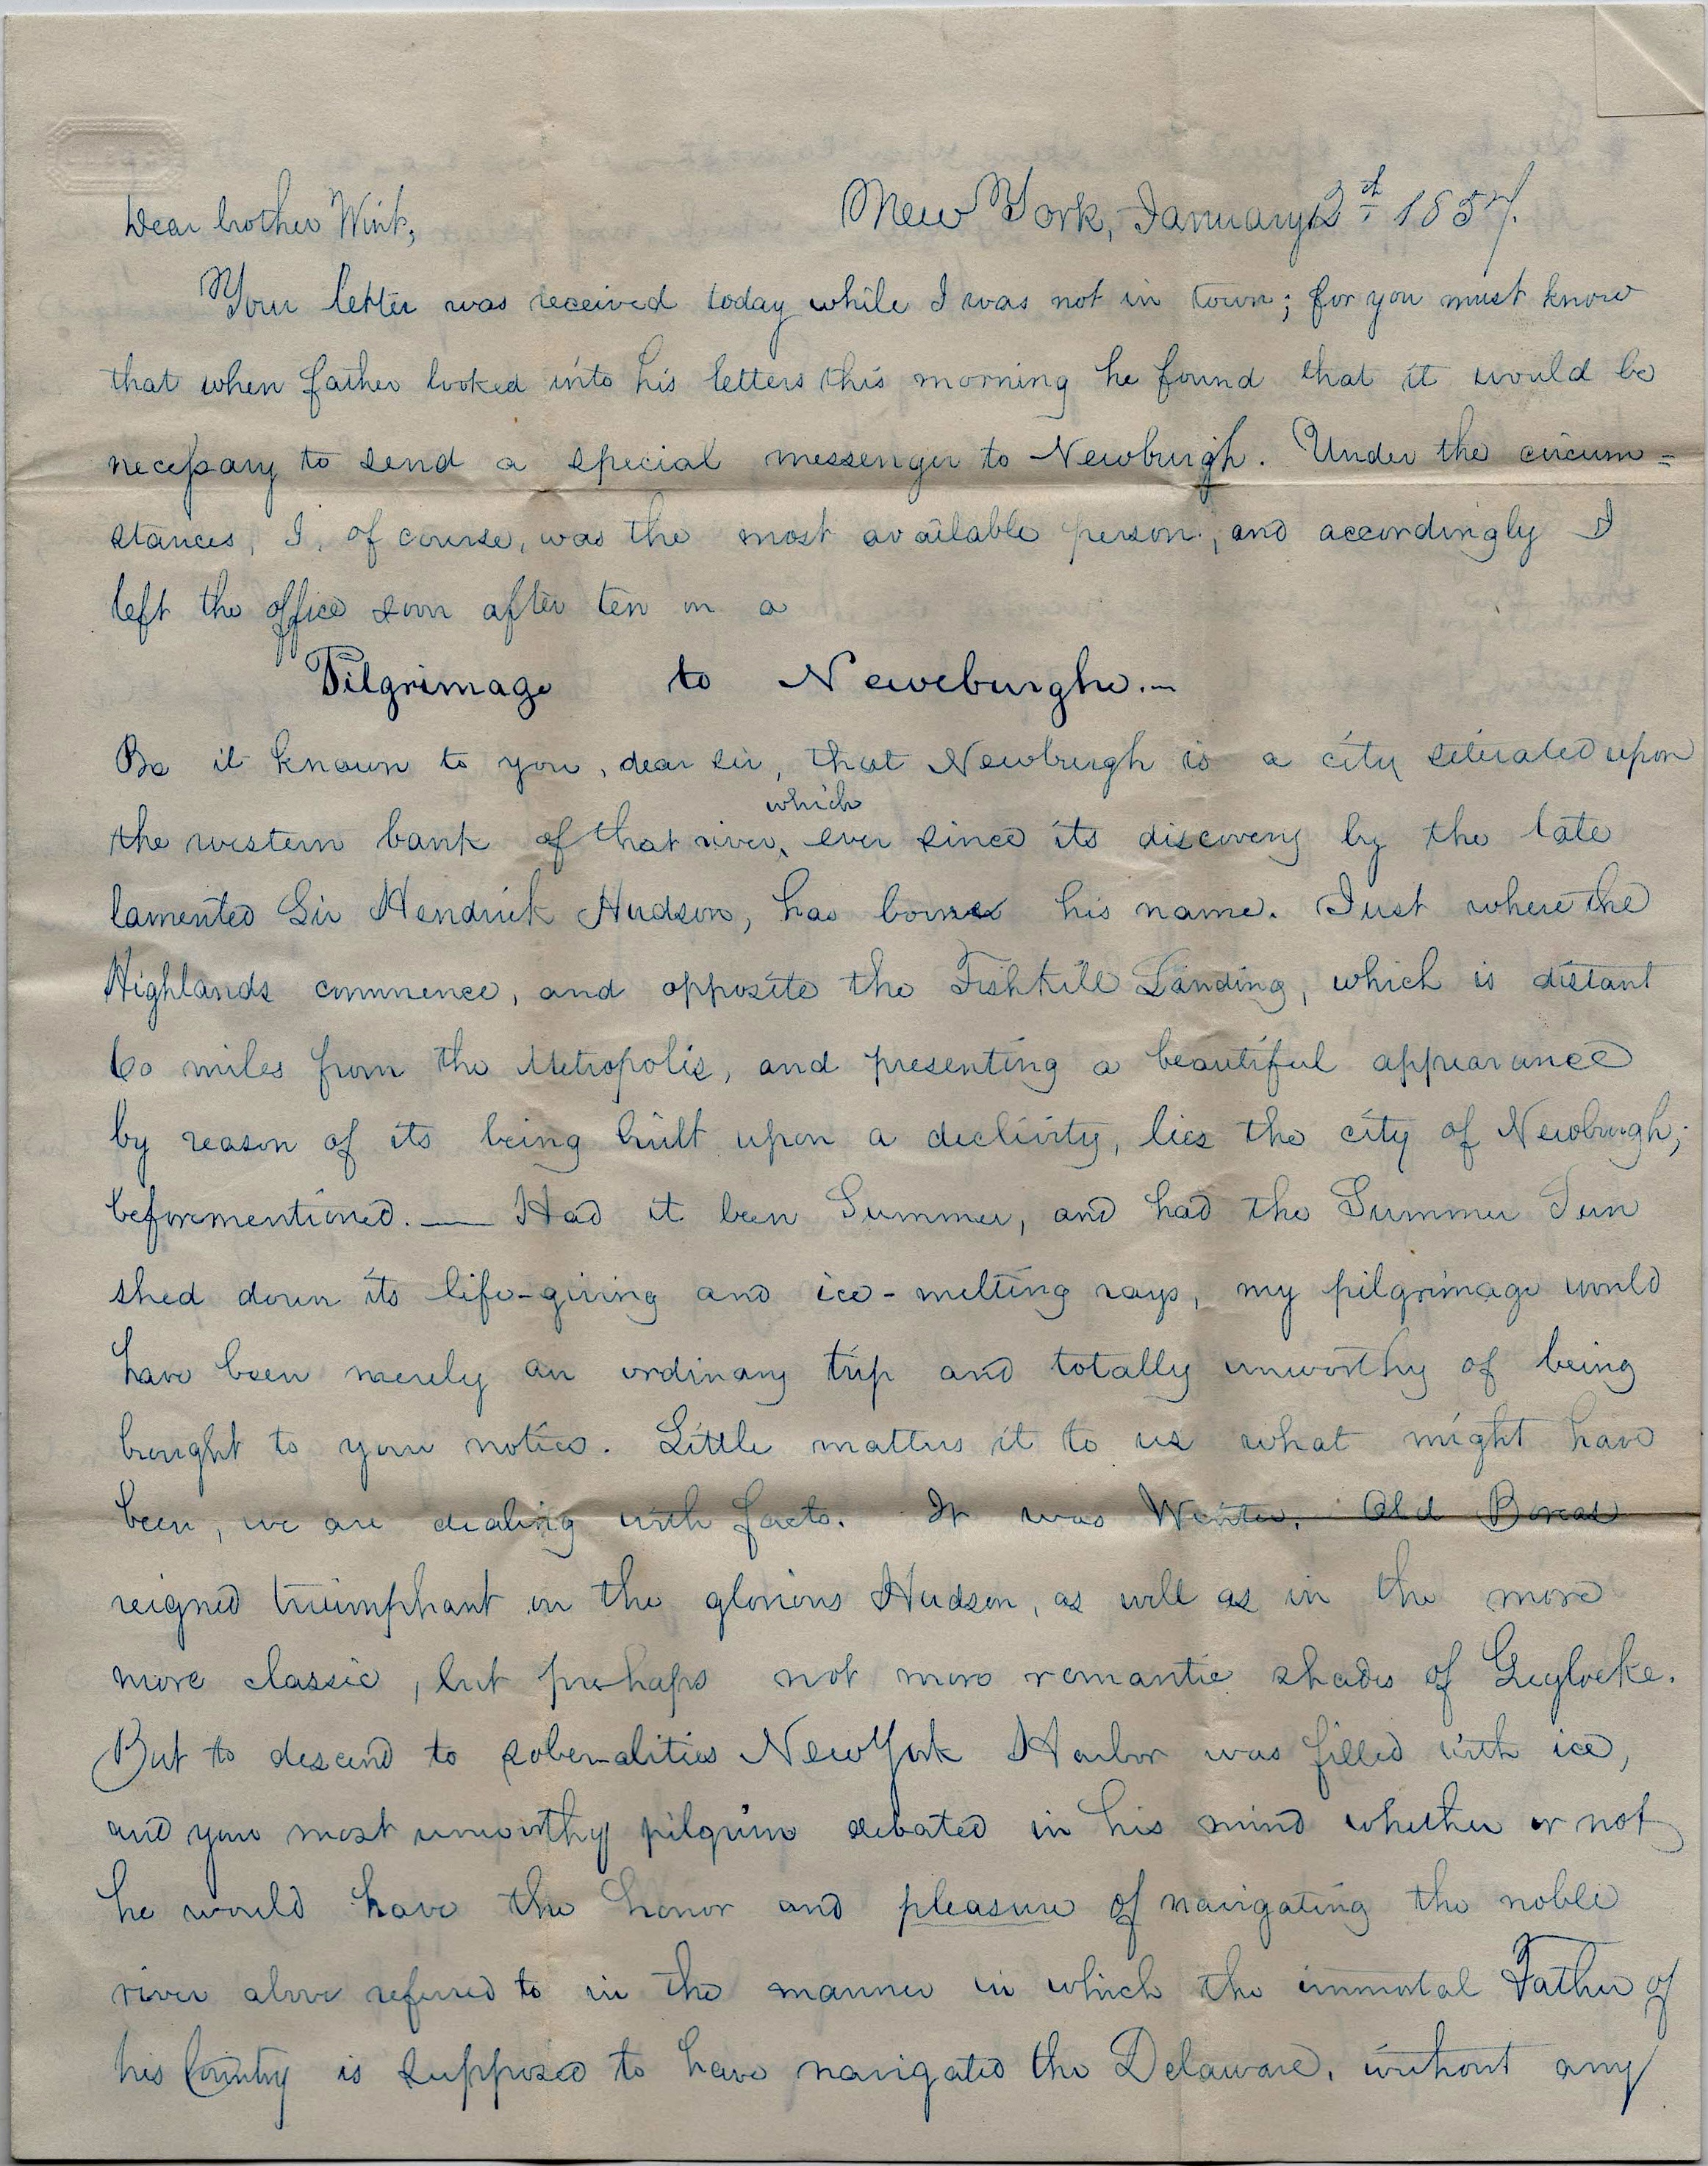 New York, January 12th 1857.
Dear brother Wink,
Your letter was received today while I was not in town; for you must know
that when father looked into his letters this morning he found that it would be
necessary to send a special messenger to Newburgh. Under the circum=
stances, I, of course, was the most available person, and accordingly I
left the office soon after ten on a
Pilgrimage to Neweburghe.—
Be it known to you, dear sir, that Newburgh is a city situated upon
which
the western bank of that river, ever since its discovery by the late
lamented Sir Hendrick Hudson, has borne his name. Just where the
Highlands commence, and opposite the Fishkill Landing, which is distant
60 miles from the Metropolis, and presenting a beautiful appearance
by reason of its being built upon a declivity, lies the city of Newburgh,
beforementioned. — Had it been Summer, and had the Summer Sun
shed down its life-giving and ice-melting rays, my pilgrimage would
have been merely an ordinary trip and totally unworthy of being
brought to your notice. Little matters it to us what might have
been, we are dealing with facts. It was Winter. Old Boreas
reigned triumphant on the glorious Hudson, as well as in the more
more classic, but perhaps not more romantic shades of
But to descend to New York Harbor was filled with ice,
and your most unworthy pilgrim debated in his mind whether or not
he would have the honor and pleasure of navigating the noble
river above referred to in the manner in which the immortal Father of
his Country is supposed to have navigated the Delaware, without any